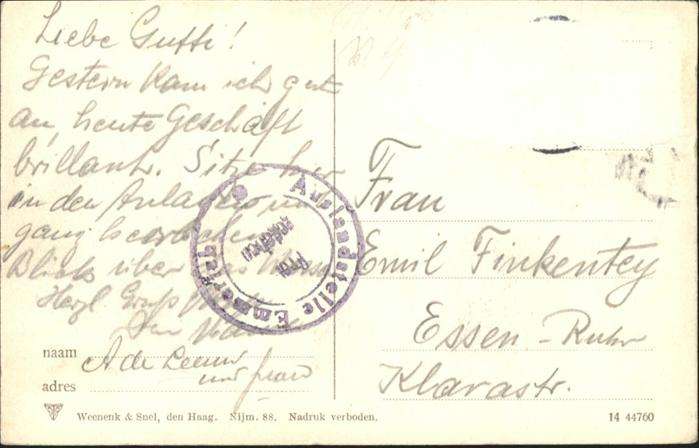 Liebe Gutti!
Gestern kam ich gut
an, heute Geschäft
brillant. Sitze hier
in den Anlagen
ganz
Blick über das
Herzl. Gruß
Dein
A de Leeuw
und Frau
naam
adres
Auslandsstelle Emmerich
Frei
gegeben
Frau
Emil Finkentey
Essen-Ruhr
Klarastr.
Weenenk & Snel, den Haag. Nijm. 88. Nadruk verboden.
14 44760